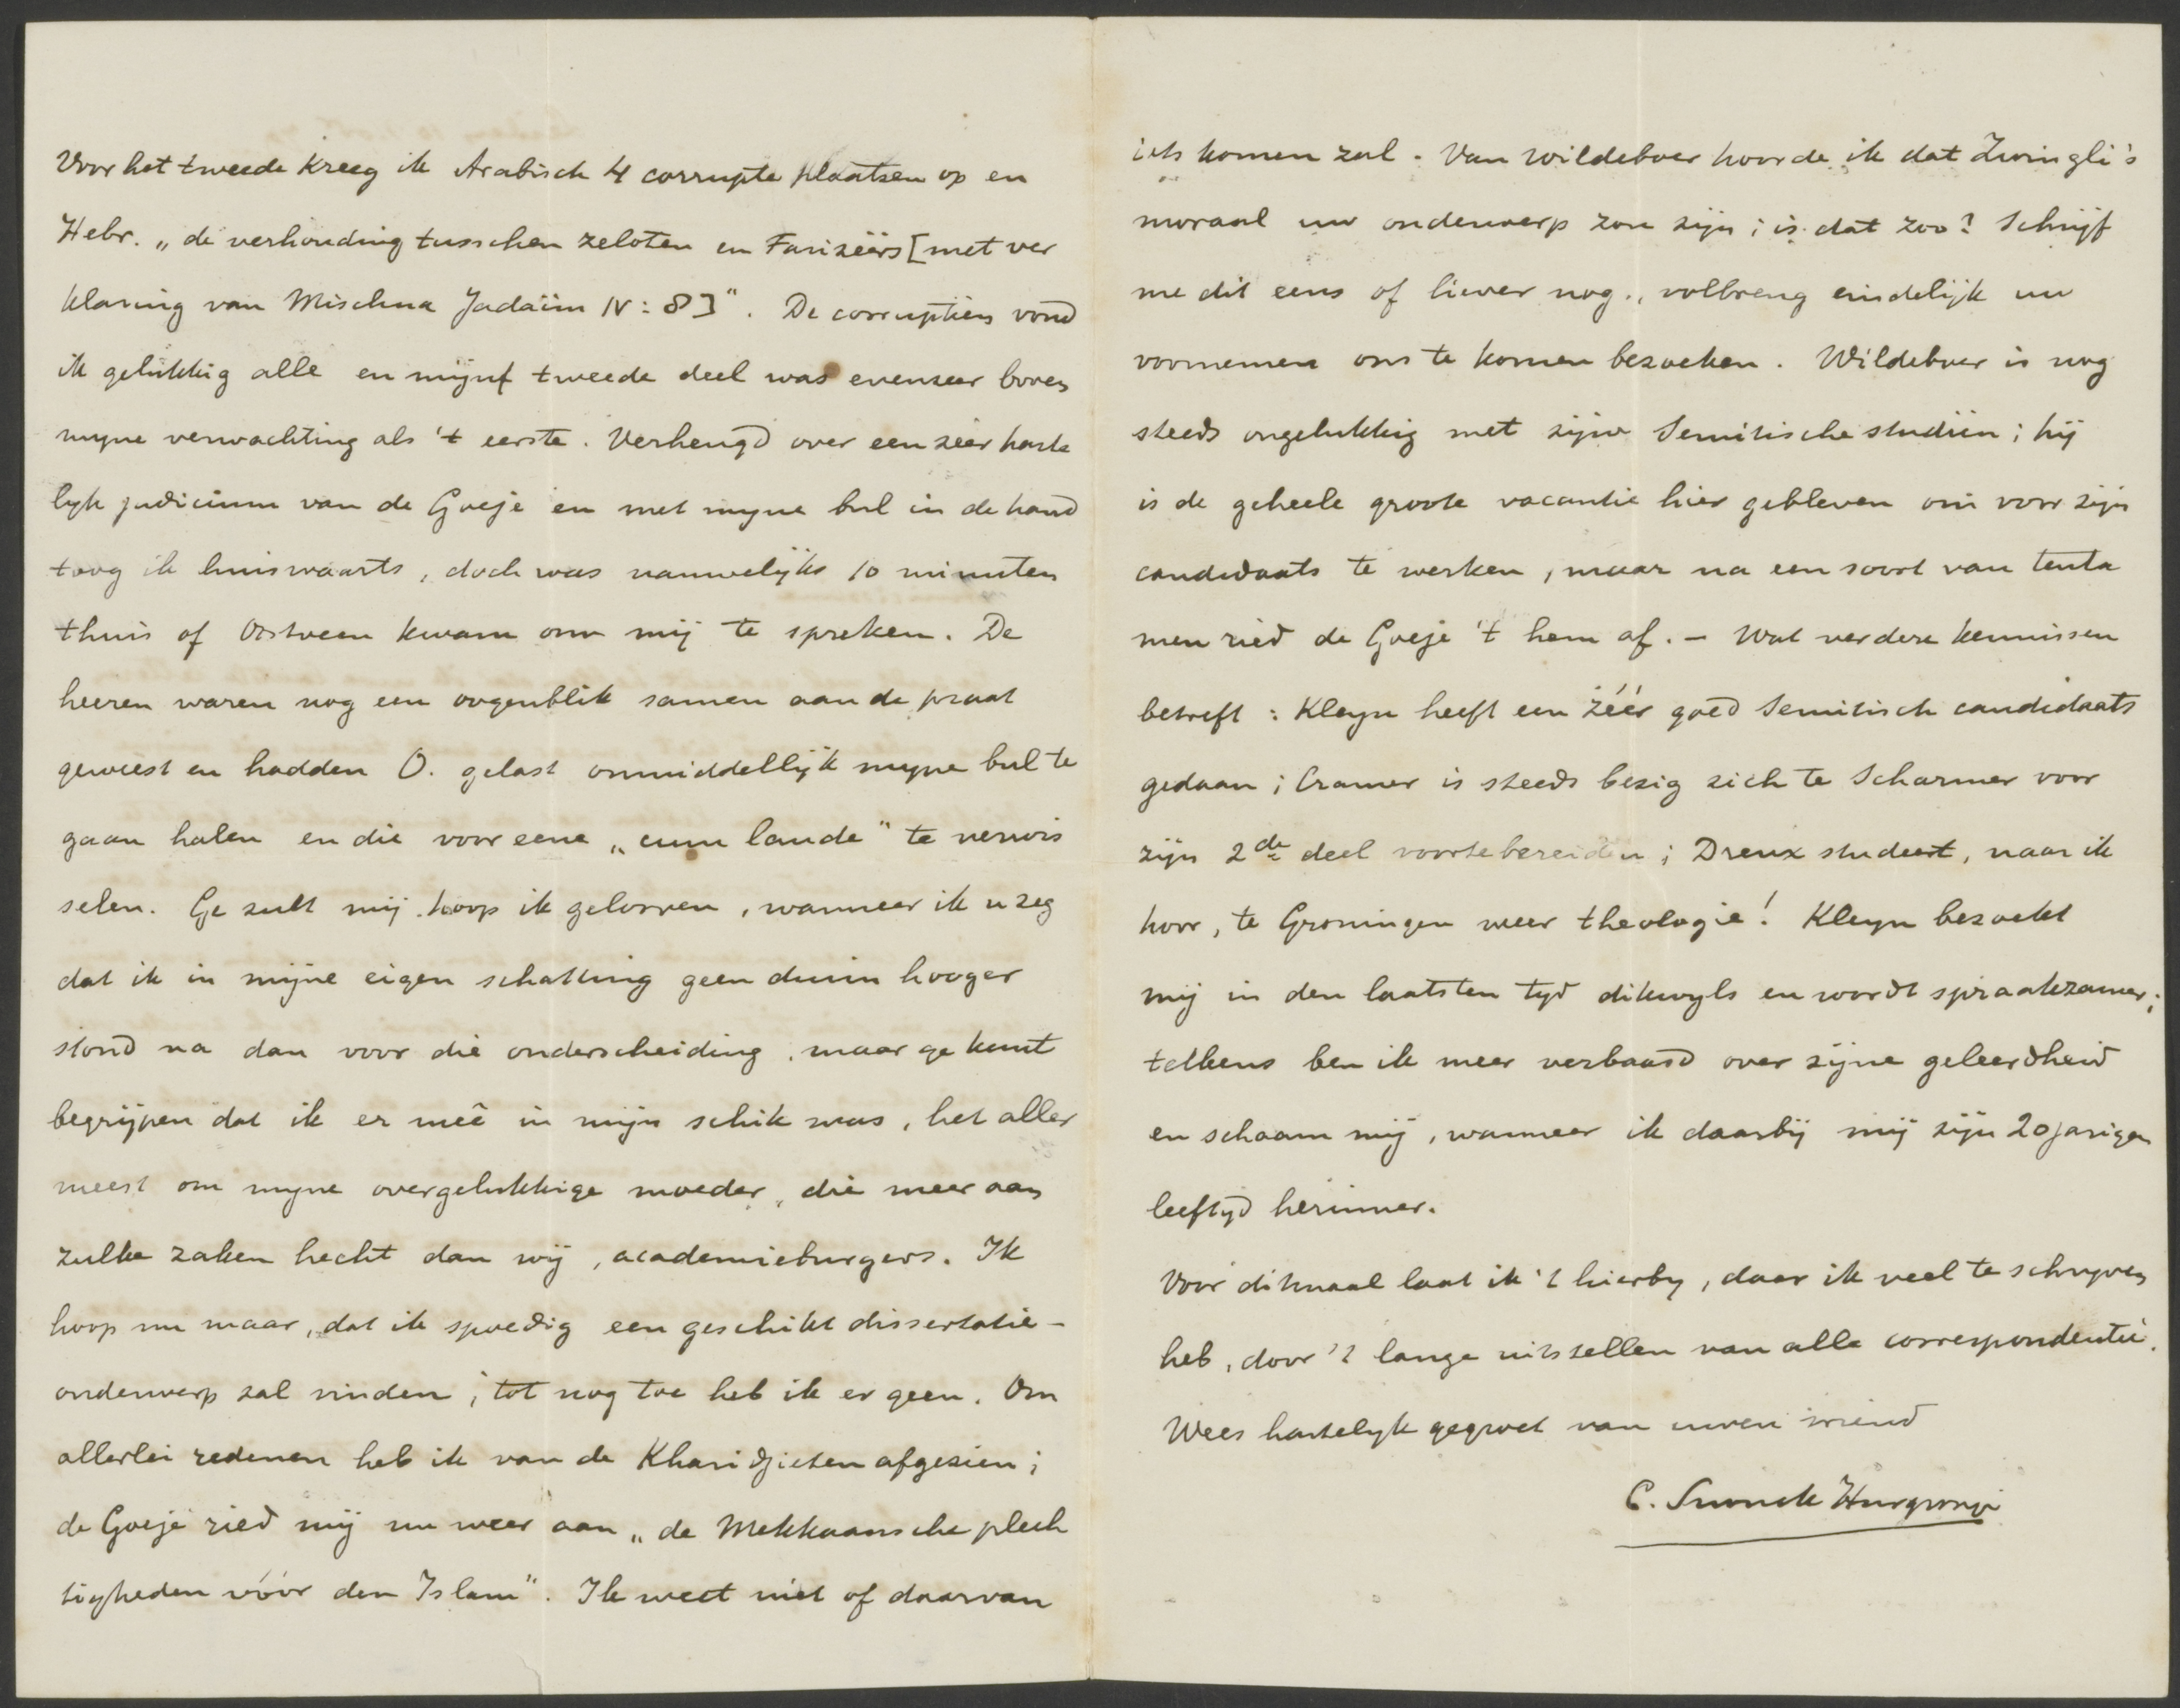 Voor het tweede kreeg ik Arabisch 4 corrupte plaatsen op en
Hebr. „de verhouding tusschen zeloten en Farizëërs [met ver
klaring van Mischna Jadäim IV : 8]". De corruptiën vond
ik gelukkig alle en mijn tweede deel was evenzeer boven
myne verwachting als 't eerste. Verheugd over een zéér harte
lyk judicium van de Goeje en met myne bul in de hand
toog ik huiswaarts, doch was nauwelijks 10 minuten
thuis of Oostveen kwam om mij te spreken. De
heeren waren nog een oogenblik samen aan de praat
geweest en hadden O. gelast onmiddellijk myne bul te
gaan halen en die voor eene „cum laude" te verwis
selen. Ge zult mij hoop ik gelooven, wanneer ik u zeg
dat ik in mijne eigen schatting geen duim hooger
stond na dan voor die onderscheiding, maar ge kunt
begrijpen dat ik er meê in mijn schik was, het aller
meest om myne overgelukkige moeder, die meer aan
zulke zaken hecht dan wij, academieburgers. Ik
hoop nu maar, dat ik spoedig een geschikt dissertatie-
onderwerp zal vinden; tot nog toe heb ik er geen. Om
allerlei redenen heb ik van de Kharidjieten afgezien;
de Goeje ried mij nu weer aan „de Mekkaansche plech
tigheden vóór den Islam". Ik weet niet of daarvan
iets komen zal. Van Wildeboer hoorde ik dat Zwingli's
moraal uw onderwerp zou zijn; is dat zoo? Schrijf
me dit eens of liever nog, volbreng eindelijk uw
voornemen ons te komen bezoeken. Wildeboer is nog
steeds ongelukkig met zijne Semitische studiën; hij
is de geheele groote vacantie hier gebleven om voor zijn
candidaats te werken, maar na een soort van tenta
men ried de Goeje 't hem af. – Wat verdere kennissen
betreft: Kleyn heeft een zéér goed Semitisch candidaats
gedaan; Cramer is steeds bezig zich te Scharmer voor
zijn 2de deel voortebereiden; Dreux studeert, naar ik
hoor, te Groningen weer theologie! Kleyn bezoekt
mij in den laatsten tyd dikwyls en wordt spraakzamer;
telkens ben ik meer verbaasd over zijne geleerdheid
en schaam mij, wanneer ik daarbij mij zijn 20jarigen
leeftyd herinner.
Voor ditmaal laat ik 't hierby, daar ik veel te schryven
heb, door 't lange uitstellen van alle correspondentie.
Wees hartelyk gegroet van uwen vriend
C. Snouck Hurgronje